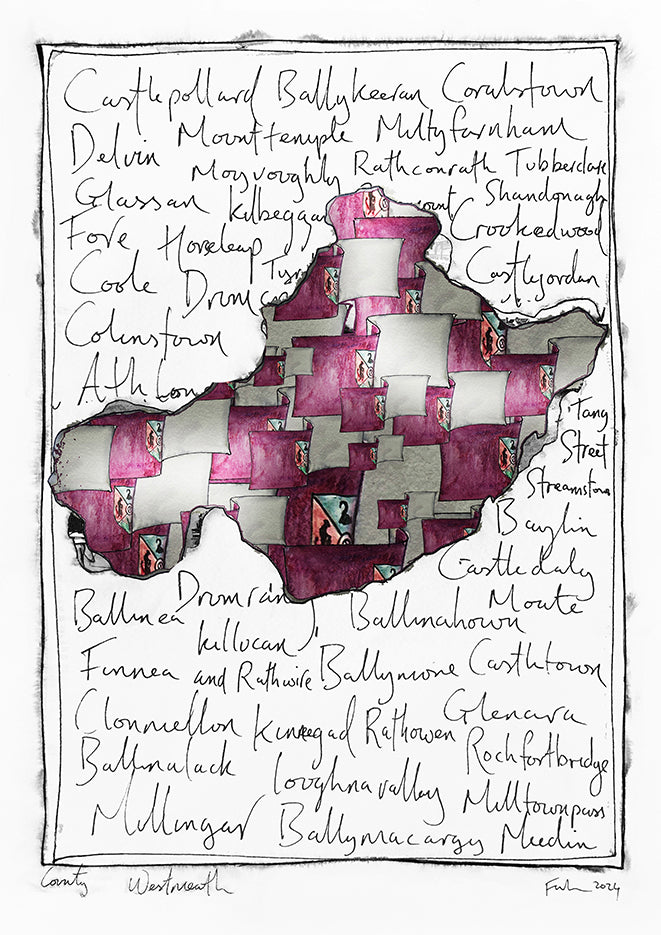 Castlepollard Ballykeeran Coralstown
Delvin Mounttemple Multyfarnham
Moyvoughly Rathconrath Tubberclare
Glassan Kilbeggan Shandonagh
Fore Horseleap Crookedwood
Coole Castlejordan
Colinstown
Tang
Street
Streamstown
Baylin
Castledaly
Ballinea Drumraney Ballinahown Moate
Killucan
Finnea and Rathwire Ballymore Castletown
Clonmellon Kinnegad Rathowen Glenava
Ballinalack Loughnavalley Rochfortbridge
Milltownpass
Mullingar Ballymacargy Meedin
County Westmeath 2024